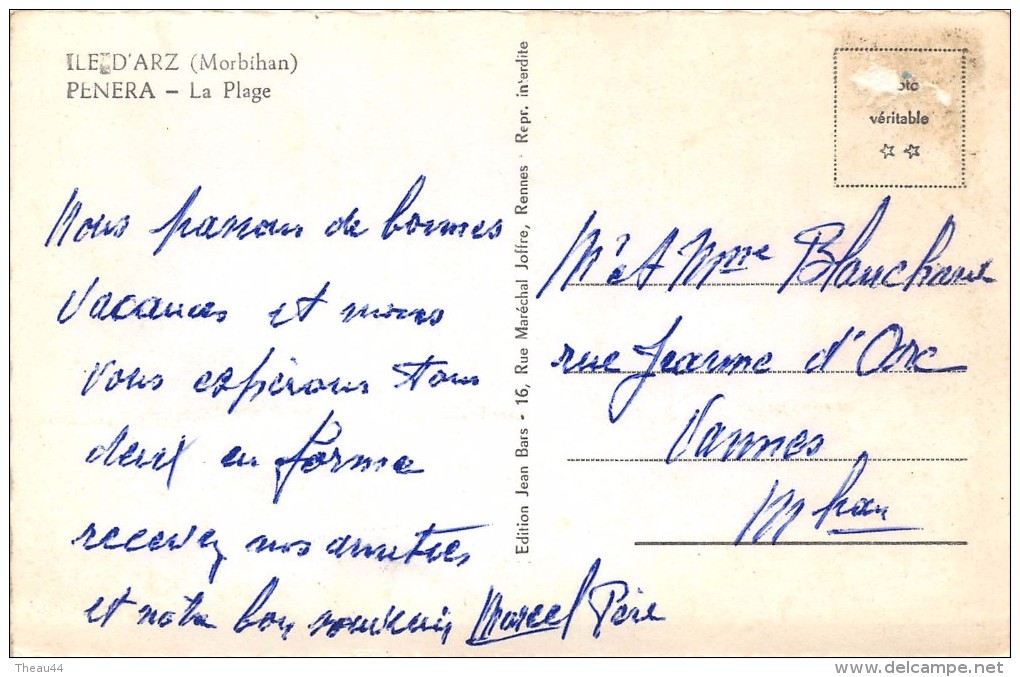 ILE D'ARZ (Morbihan)
PENERA – La Plage
Nous passons de bonnes
vacances et nous
vous espérons tous
deux en forme
recevez nos amitiés
et notre bon souvenir Marcel Père
Edition Jean Bars - 16, Rue Maréchal Joffre, Rennes - Repr. interdite
véritable
Mr et Mme
rue Jeanne d'Arc
Vannes
Mhan
Theau44
www.delcampe.net